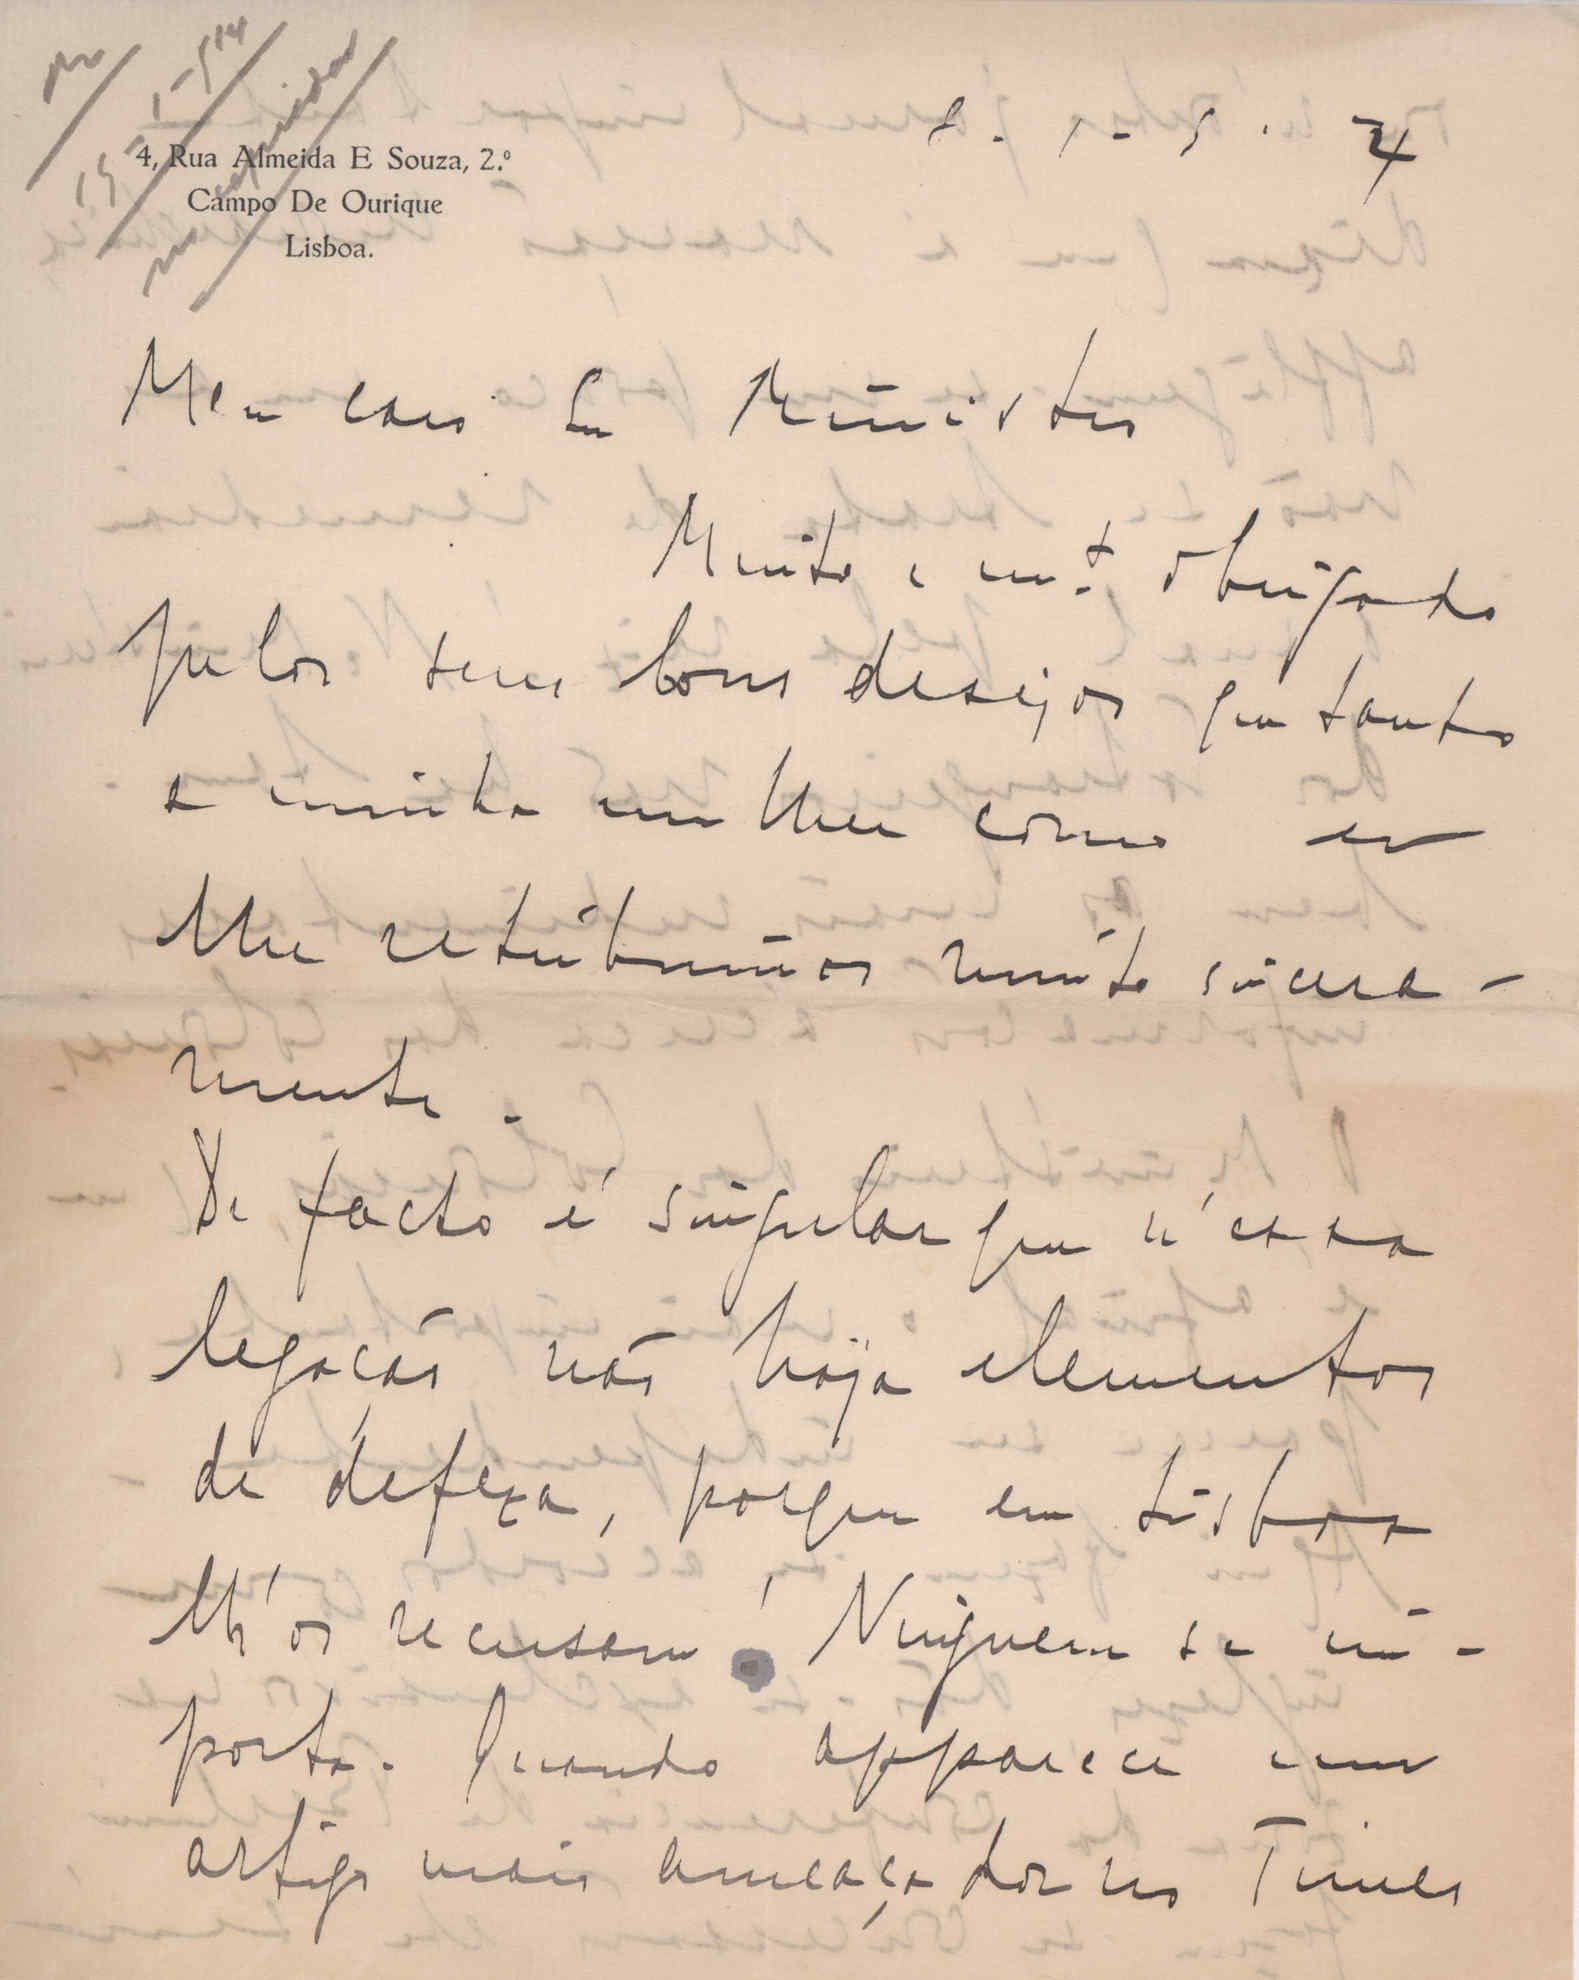 15-1-914
4, Rua Almeida E Souza, 2.º
Campo De Ourique
Lisboa.
Meu caro Snr Ministro
Muito e mto obrigado
pelos seus bons desejos que tanto
a minha mulher como eu
lhe retribuimos muito sincera-
mente.
De facto é singular que n'essa
legação não haja elementos
de defeza, porque em Lisboa
lh'os recusam! Ninguem se im-
porta. Quando apparece um
artigo mais ameaçador no Times